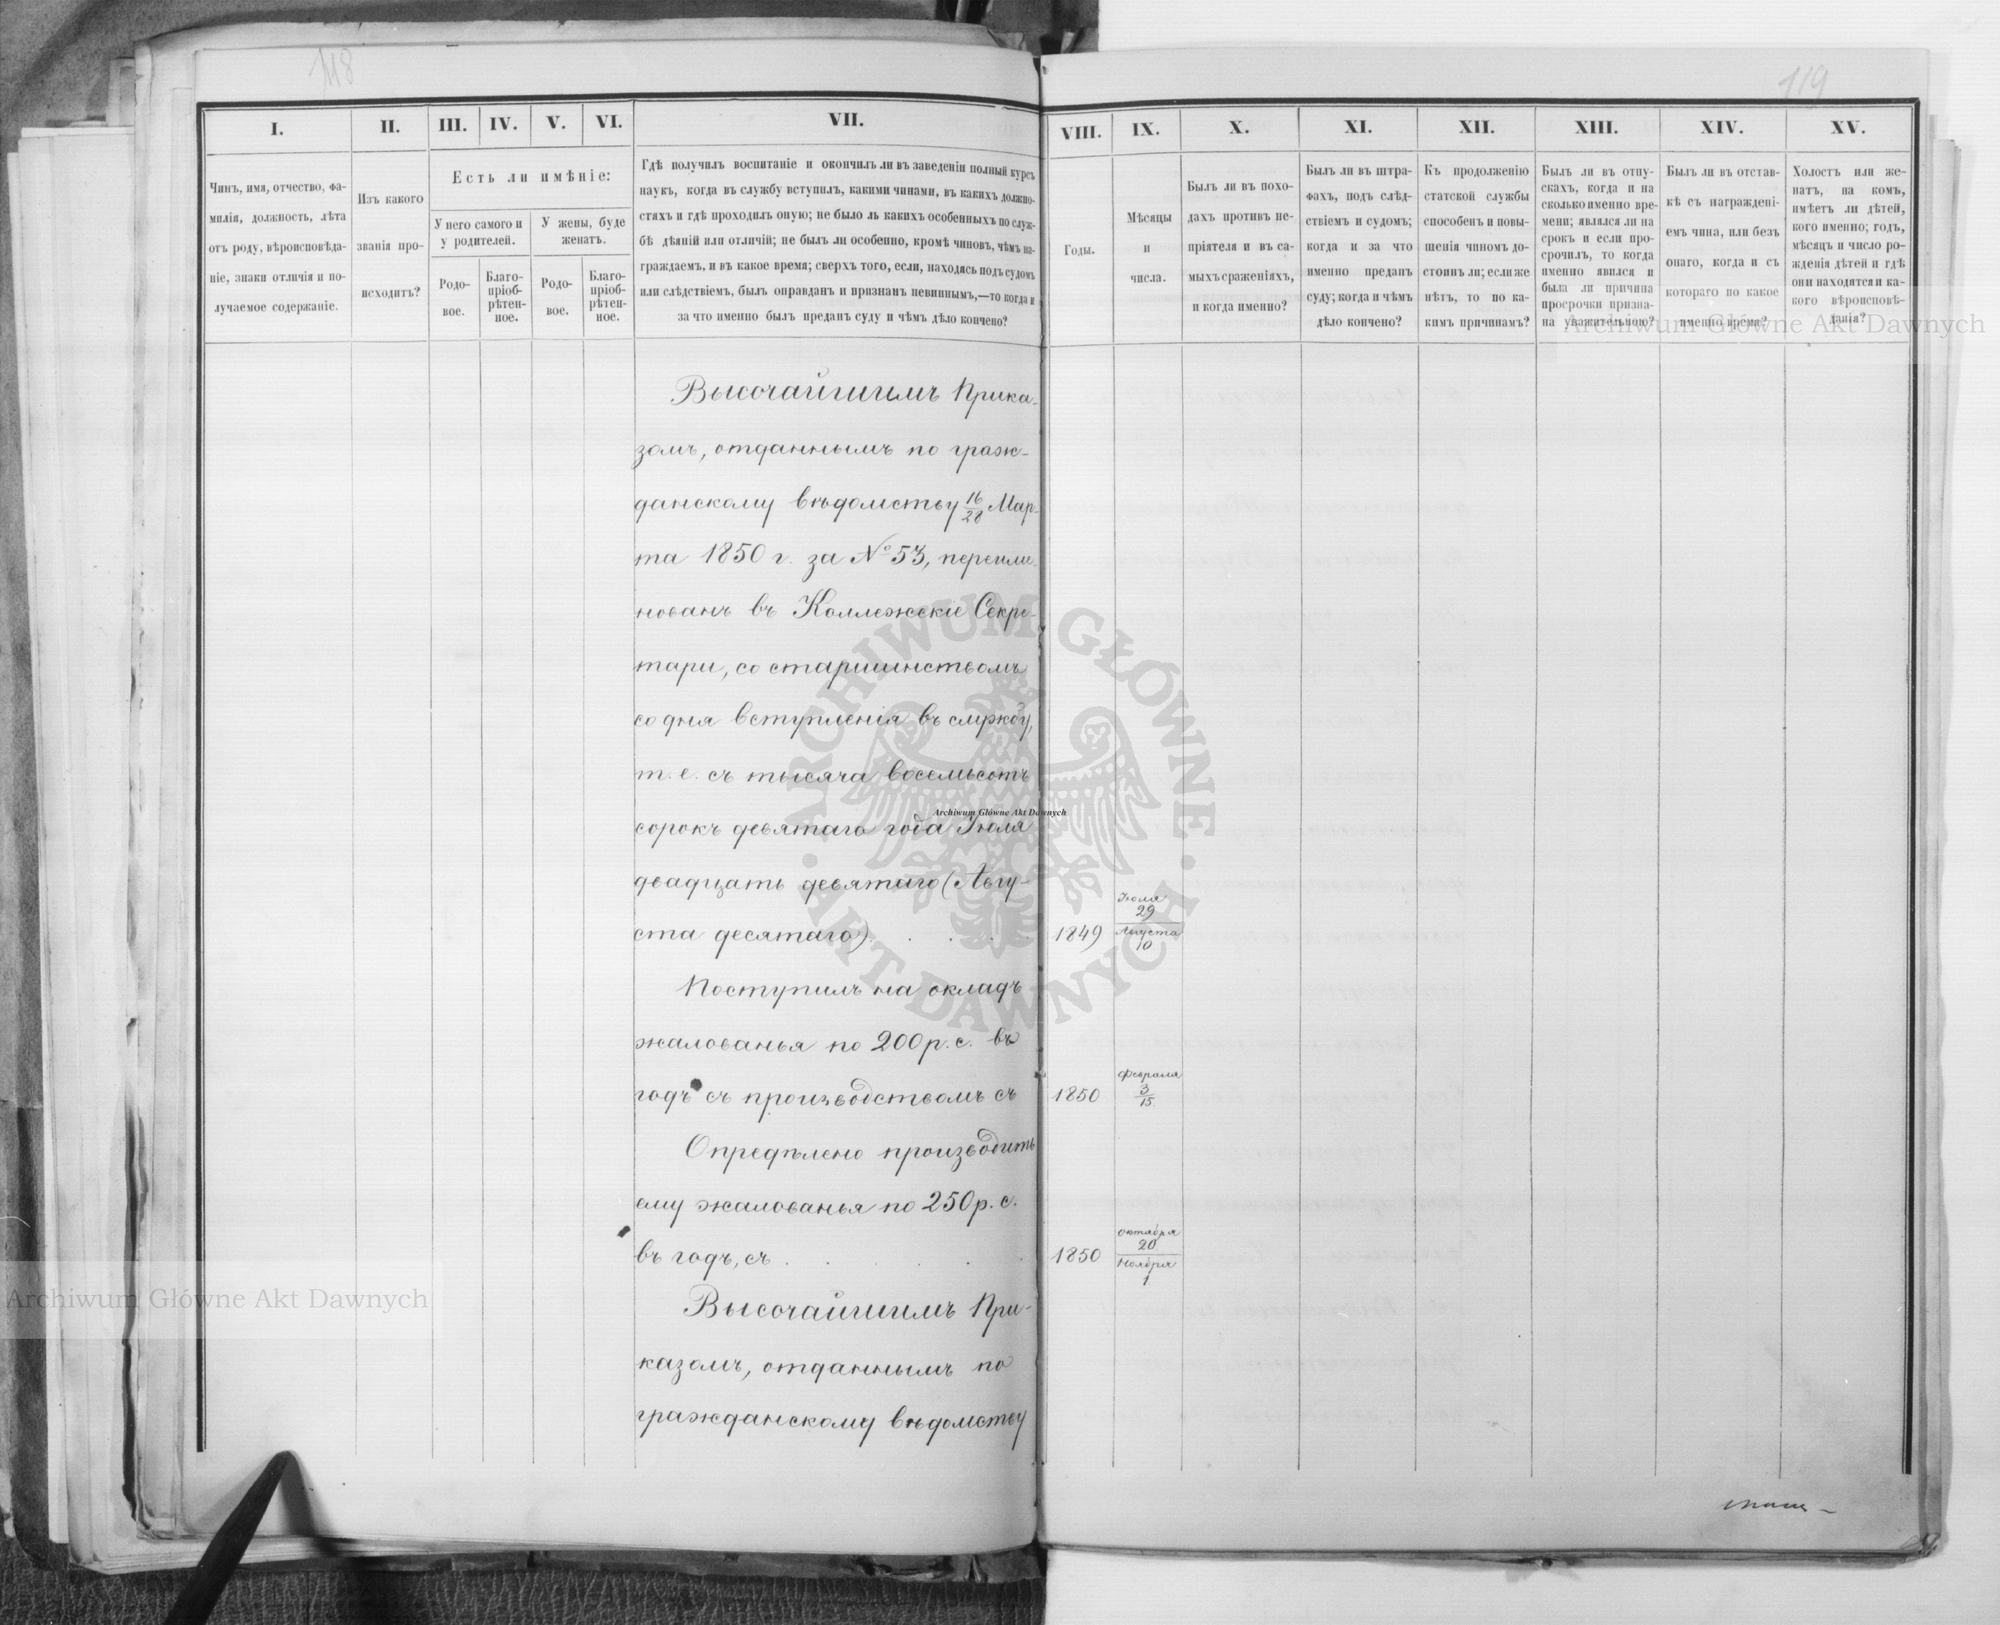 118
119
I.
II.
III.
IV.
V.
VI.
VII.
VIII.
IX.
X.
XI.
XII.
XIII.
XIV.
XV.
Чинъ, имя, отчество, фа-
милія, должность, лѣта
отъ роду, вѣроисповѣда-
ніе, знаки отличія и по-
лучаемое содержаніе.
Изъ какого
званія про-
исходитъ?
Есть ли имѣніе:
У него самого и
у родителей.
У жены, буде
женатъ.
Родо-
вое.
Благо-
пріоб-
рѣтен-
ное.
Родо-
вое.
Благо-
пріоб-
рѣтен-
ное.
Гдѣ получилъ воспитаніе и окончилъ ли въ заведеніи полный курсъ
наукъ, когда въ службу вступилъ, какими чинами, въ какихъ должно-
стяхъ и гдѣ проходилъ оную; не было ль какихъ особенныхъ по служ-
бѣ дѣяній или отличій; не былъ ли особенно, кромѣ чиновъ, чѣмъ на-
граждаемъ, и въ какое время; сверхъ того, если, находясь подъ судомъ
или слѣдствіемъ, былъ оправданъ и признанъ невиннымъ,—то когда и
за что именно былъ преданъ суду и чѣмъ дѣло кончено?
Годы.
Мѣсяцы
и
числа.
Былъ ли въ похо-
дахъ противъ не-
пріятеля и въ са-
мыхъ сраженіяхъ,
и когда именно?
Былъ ли въ штра-
фахъ, подъ слѣд-
ствіемъ и судомъ;
когда и за что
именно преданъ
суду; когда и чѣмъ
дѣло кончено?
Къ продолженію
статской службы
способенъ и повы-
шенія чиномъ до-
стоинъ ли; если же
нѣтъ, то по ка-
кимъ причинамъ?
Былъ ли въ отпу-
скахъ, когда и на
сколько именно вре-
мени; являлся ли на
срокъ и если про-
срочилъ, то когда
именно явился и
была ли причина
просрочки призна-
на уважительною?
Былъ ли въ отстав-
кѣ съ награжденi-
емъ чина, или безъ
онаго, когда и съ
котораго по какое
именно время?
Холостъ или же-
натъ, на комъ,
имѣетъ ли дѣтей,
кого именно; годъ,
мѣсяцъ и число ро-
жденія дѣтей и гдѣ
они находятся и ка-
кого вѣроисповѣ-
данія?
Высочайшимъ Прика-
зомъ, отданнымъ по граж-
данскому вѣдомству 16/28 Мар-
та 1850 г. за № 53, переиме-
нованъ въ Коллежскіе Секре-
тари, со старшинствомъ
со дня вступленія въ службу,
т. е. съ тысяча восемьсотъ
сорокъ девятаго года Іюля
двадцать девятаго (Авгу-
ста десятаго) . . . .
1849
Іюля
29
Августа
10
Поступилъ на окладъ
жалованья по 200 р. с. въ
годъ съ производствомъ съ
1850
Февраля
3
15
Опредѣлено производить
ему жалованья по 250 р. с.
въ годъ, съ . . . . .
1850
Октября
20
Ноября
1
Высочайшимъ При-
казомъ, отданнымъ по
гражданскому вѣдомству
Archiwum Główne Akt Dawnych
Archiwum Główne Akt Dawnych
Archiwum Główne Akt Dawnych
ARCHIWUM GŁÓWNE · AKT DAWNYCH ·